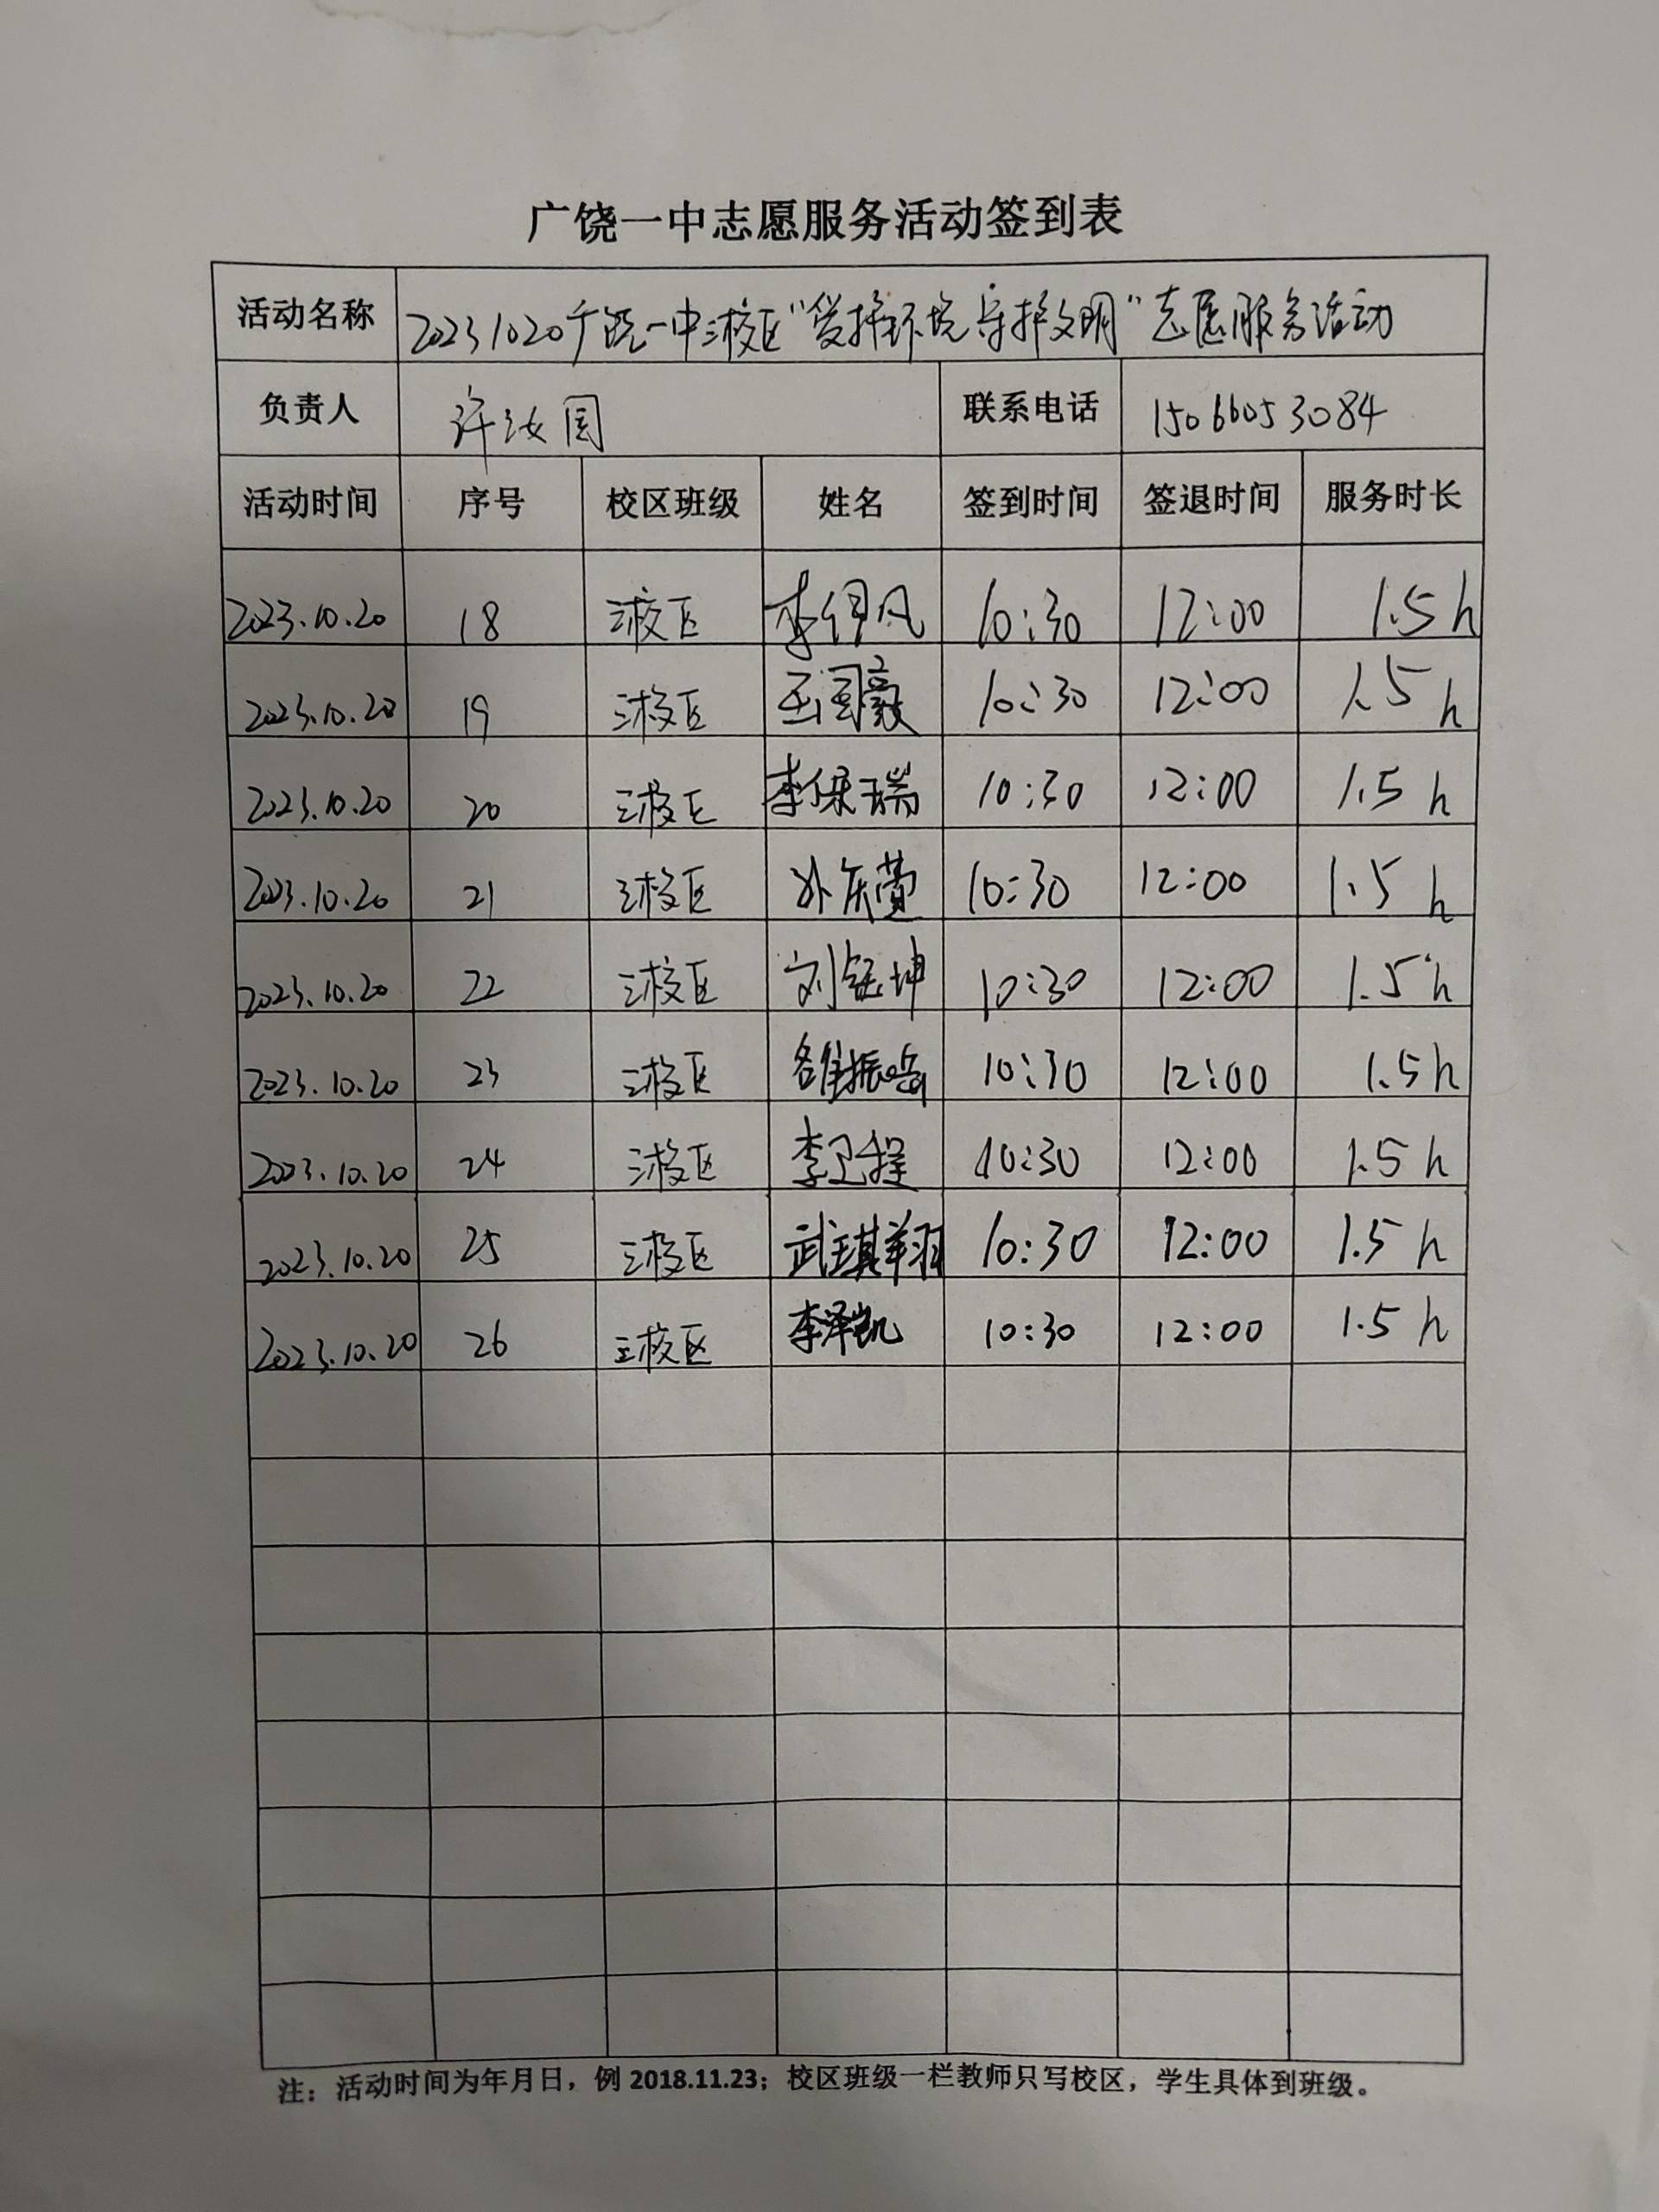 广饶一中志愿服务活动签到表
活动名称 20231020广饶一中三校区“爱护环境 守护文明”志愿服务活动
负责人 许汝国 联系电话 15066053084
活动时间 序号 校区班级 姓名 签到时间 签退时间 服务时长
2023.10.20 18 三校区 10:30 12:00 1.5h
2023.10.20 19 三校区 10:30 12:00 1.5h
2023.10.20 20 三校区 李保瑞 10:30 12:00 1.5h
2023.10.20 21 三校区 10:30 12:00 1.5h
2023.10.20 22 三校区 刘钰坤 10:30 12:00 1.5h
2023.10.20 23 三校区 10:30 12:00 1.5h
2023.10.20 24 三校区 李卫程 10:30 12:00 1.5h
2023.10.20 25 三校区 武琪翔 10:30 12:00 1.5h
2023.10.20 26 三校区 李泽凯 10:30 12:00 1.5h
注：活动时间为年月日，例 2018.11.23；校区班级一栏教师只写校区，学生具体到班级。